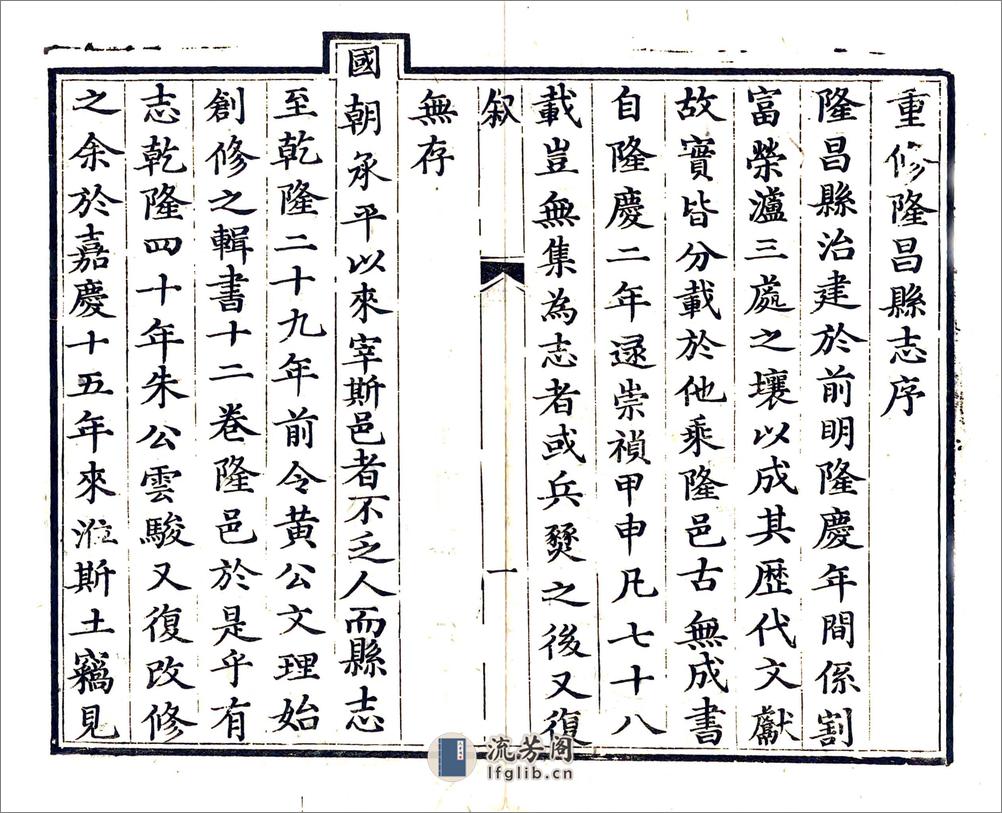 重修隆昌縣志序
隆昌縣治建於前明隆慶年間係割
富榮瀘三處之壤以成其歷代文獻
故實皆分載於他乘隆邑古無成書
自隆慶二年逯崇禎甲申凡七十八
載豈無集為志者或兵燹之後又復
叙
一
無存
國朝承平以來宰斯邑者不乏人而縣志
至乾隆二十九年前令黃公文理始
創修之輯書十二卷隆邑於是乎有
志乾隆四十年朱公雲駿又復改修
之余於嘉慶十五年來涖斯土竊見
流芳阁
lfglib.cn